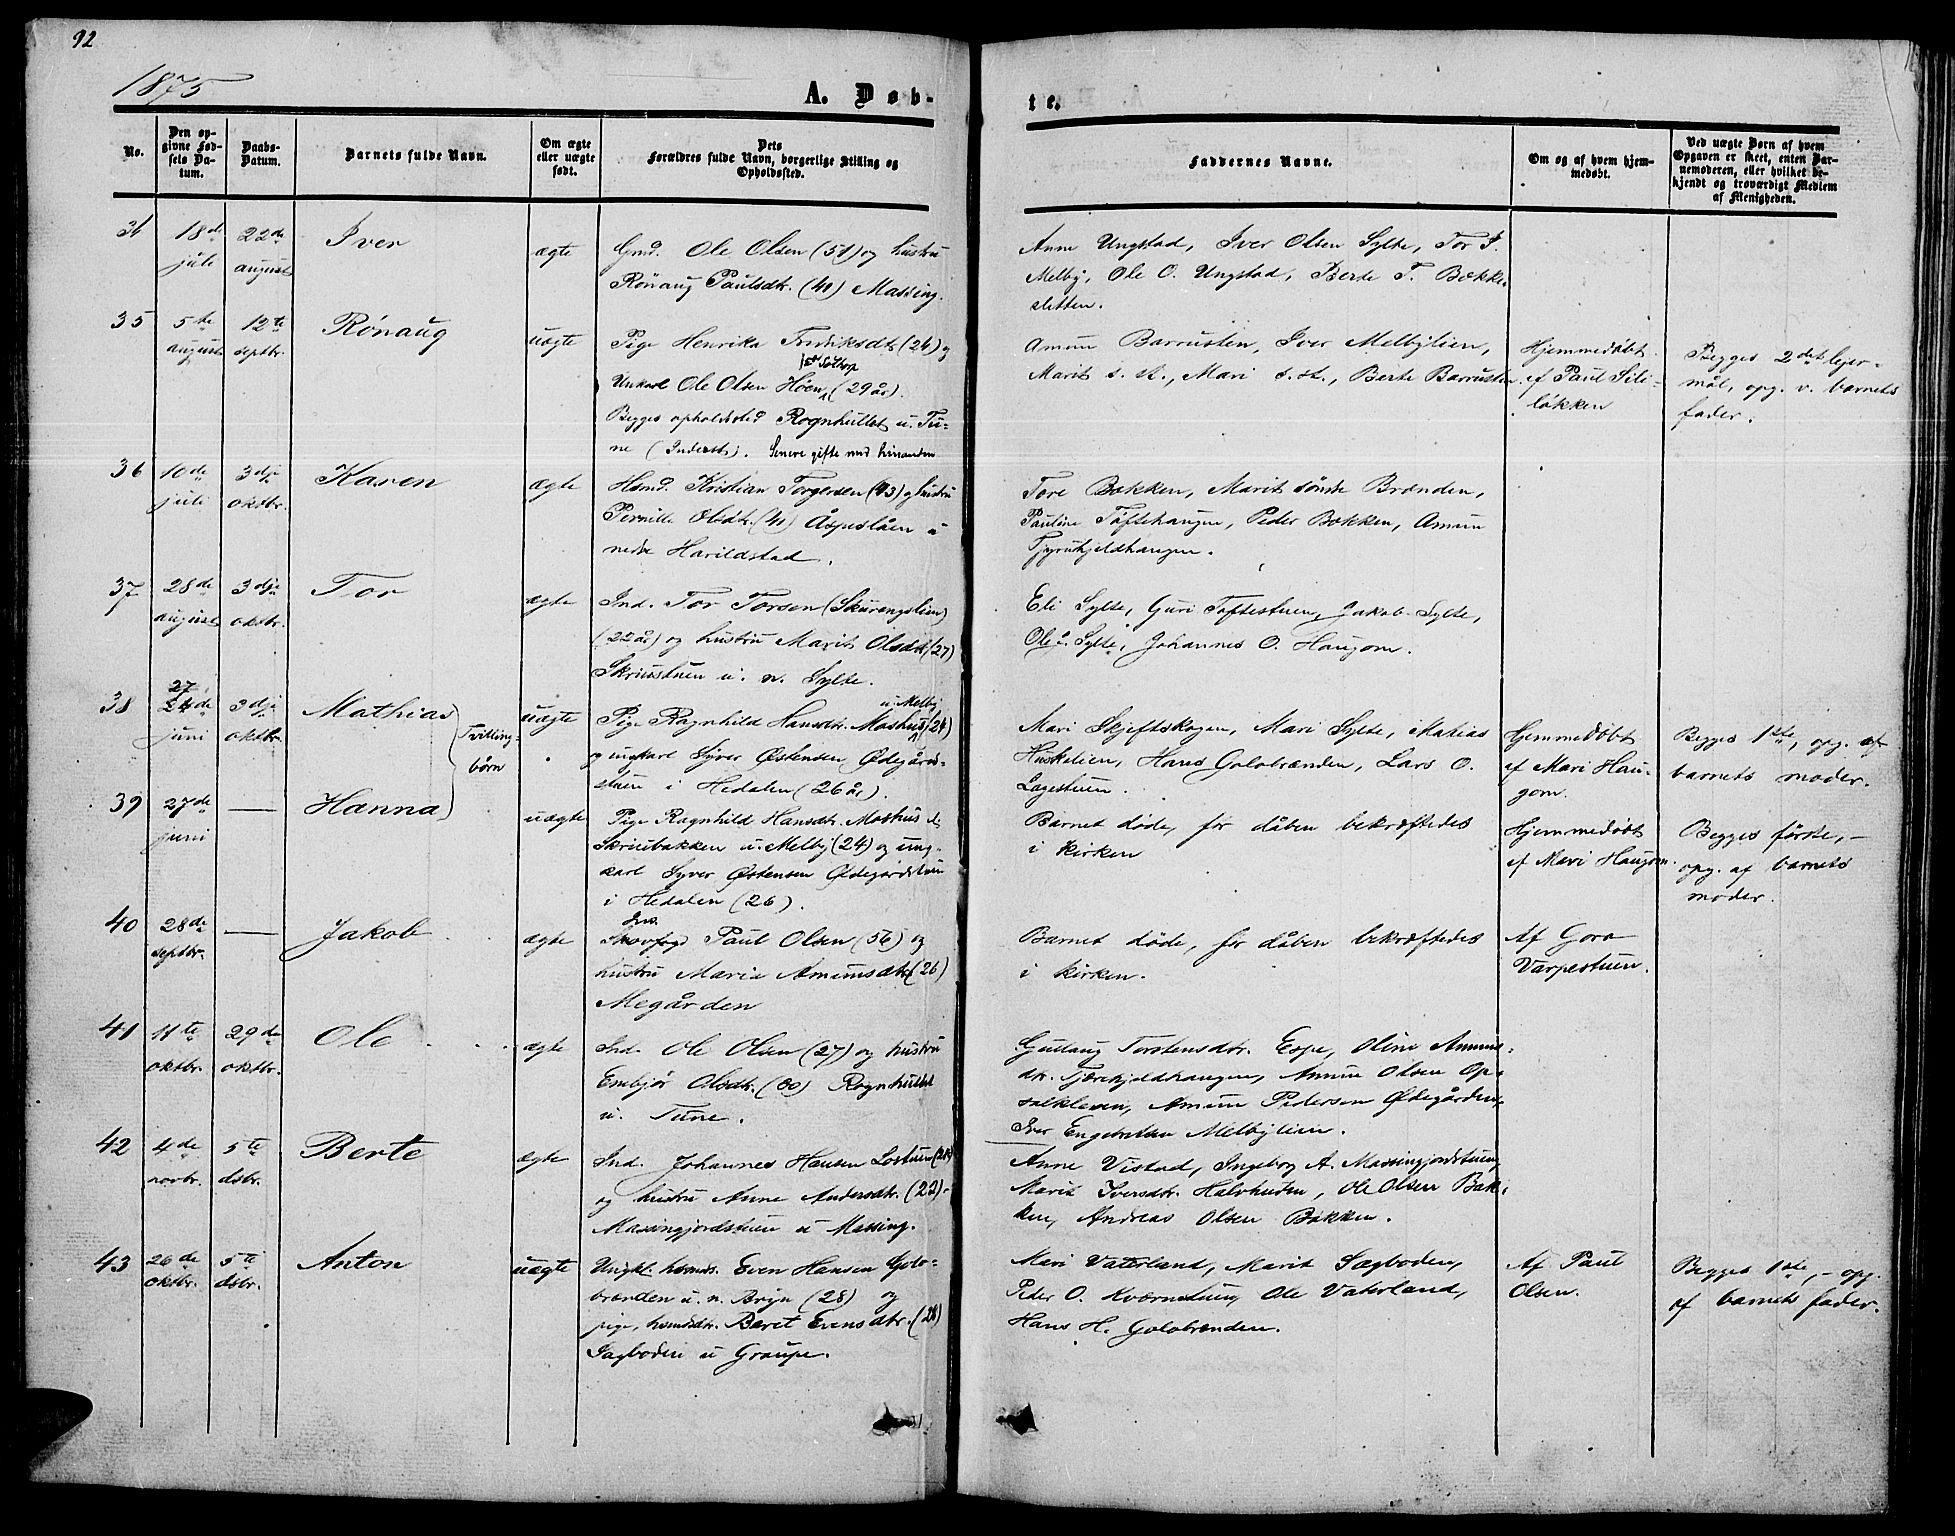 92
1875
A. Døb-
te.
No.
Den op-
givne Fød-
sels Da-
tum.
Daabs-
Datum.
Barnets fulde Navn.
Om ægte
eller uægte
født.
Dets
Forældres fulde Navn, borgerlige Stilling og
Opholdssted.
Faddernes Navne.
Om og af hvem hjem-
medøbt.
Ved uægte Børn af hvem
Opgaven er skeet, enten Bar-
nemoderen, eller hvilket be-
kjendt og troværdigt Medlem
af Menigheden.
34 18de juli 22de august Iver ægte
Gmd. Ole Olsen (51) og hustru
Rönaug Paulsdtr. (40) Massing.
Anne Ungstad, Iver Olsen Sylte, Tor I.
Melby, Ole O. Ungstad, Berte T. Bække-
sletten.
35 5te august 12te septbr. Rønaug uægte
Pige Henrika Fredriksdtr (24) og
Unkarl Ole Olsen Höen (29 år).
Begges opholdssted Rognhullet u. Tu-
ne (Inderst). Senere gifte med hinanden
Amun Barrusten, Iver Melbylien,
Marit s. st., Mari s. st., Berte Barrusten.
Hjemmedøbt
af Paul Sili-
løkken
Begges 2det lejer-
mål, opg. v. barnets
fader.
36 10de juli 3dje oktbr. Karen ægte
Hsmd. Kristian Torgersen (43) og hustru
Pernille Olsdtr. (41) Åspeslåen u
nedre Harildstad.
Tore Bakken, Marit sönste Brænden,
Pauline Töftehaugen, Peder Bakken, Amun
Tjyruhjeldhaugen.
37 28de august 3dje oktbr. Tor ægte
Ind. Tor Torsen (Skurengslien)
(22 år) og hustru Marit Olsdtr (27)
Skriustuen u. n. Sylte.
Eli Sylte, Guri Toftestuen, Jakob Sylte,
Ole Sylte, Johannes O. Haugom.
38 27 juni 3dje oktbr. Mathias
Tvilling-
børn
uægte
u Melby
Pige Ragnhild Hansdtr. Moshus (24)
og ungkarl Syver Østensen Ødegård-
stuen i Hedalen (26 år).
Mari Skjeftskogen, Mari Sylte, Matias
Huskelien, Hans Golobrænden, Lars O.
Lagestuen.
Hjemmedøbt
af Mari Hau-
gom.
Begges 1ste, opg. af
barnets moder.
39 27de juni — Hanna uægte
Pige Ragnhild Hansdtr. Moshus
Skriubakken u. Melby (24) og ung-
karl Syver Østensen Ødegårdstuen
i Hedalen (26).
Barnet døde, før dåben bekræftedes
i kirken
Hjemmedøbt
af Mari Haugom.
Begges første, —
opg. af barnets
moder.
40 28de septbr. — Jakob ægte
Skovfogd Paul Olsen (56) og
hustru Marie Amunsdtr (26)
Megården
Barnet döde, før dåben bekræftedes
i kirken.
Af Goro
Varpestuen.
41 11te oktbr. 29de oktbr. Ole ægte
Ind. Ole Olsen (27) og hustru
Embjör Olsdtr. (30) Rognhullet
u. Tune.
Gullaug Torstensdtr. Espe, Oline Amuns-
dtr. Tjærehjeldhaugen, Amun Olsen Op-
salkleven, Amun Pedersen Ødegården,
Iver Engebretsen Melbylien.
42 4de novbr. 5te dsbr. Berte ægte
Ind. Johannes Hansen Lostuen
og hustru Anne Andersdtr. (22) -
Massingjordstuen u Massing.
Anne Vistad, Ingeborg A. Massingjordstuen,
Marit Iversdtr. Halvhuden, Ole Olsen Bak-
ken, Andreas Olsen Bakken.
43 26de oktbr. 5te dsbr. Anton uægte
Ungkl. Even Hansen Golo-
brænden u. n. Bryn (28) og
pige, Baret Evensdtr. (28)
Sagboden u Graupe.
Mari Vaterland, Marit Sagboden,
Peder O. Kværnstuen, Ole Vaterland,
Hans H. Golobrænden.
Af Paul
Olsen.
Begges 1ste, — opg.
af barnets fader.